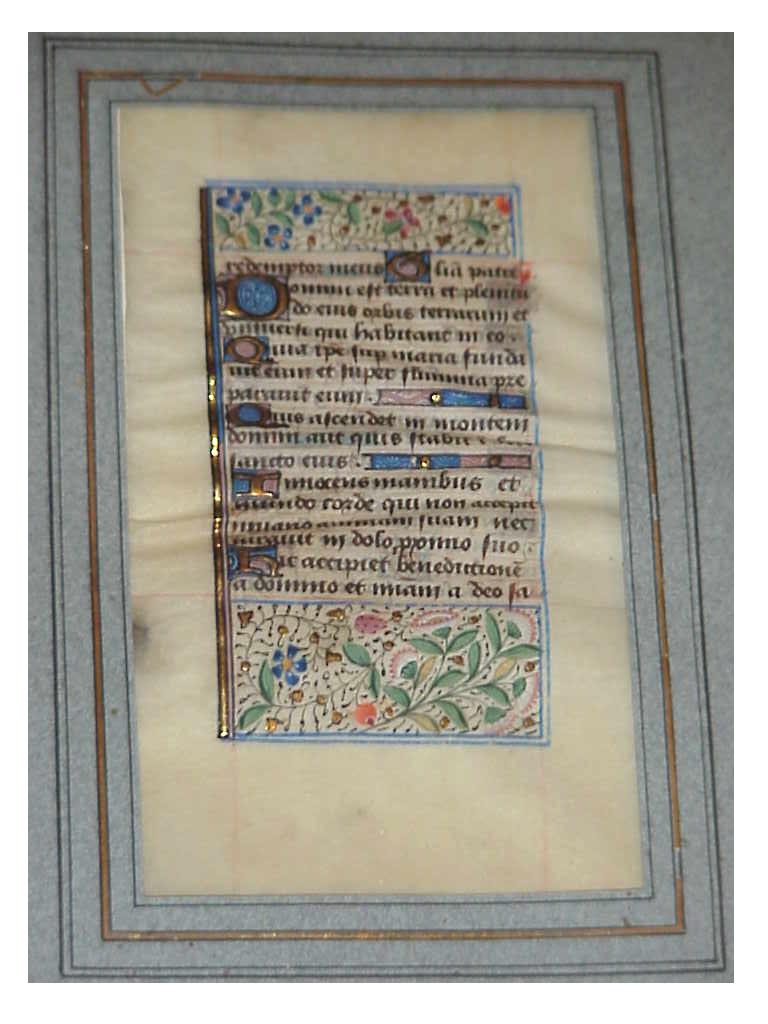 redemptor meus Glia patri
Domini est terra et plenitu
do eius orbis terrarum et
universi qui habitant in eo.
Quia ipe sup maria funda
vit eum et super flumina pre
paravit eum.
Quis ascendet in montem
domini aut quis stabit
sancto eius.
Innocens manibus et
mundo corde qui non accepit
in vano animam suam nec
iuravit in dolo proximo suo
Hic accipiet benedictionē
a domino et miam a deo sa